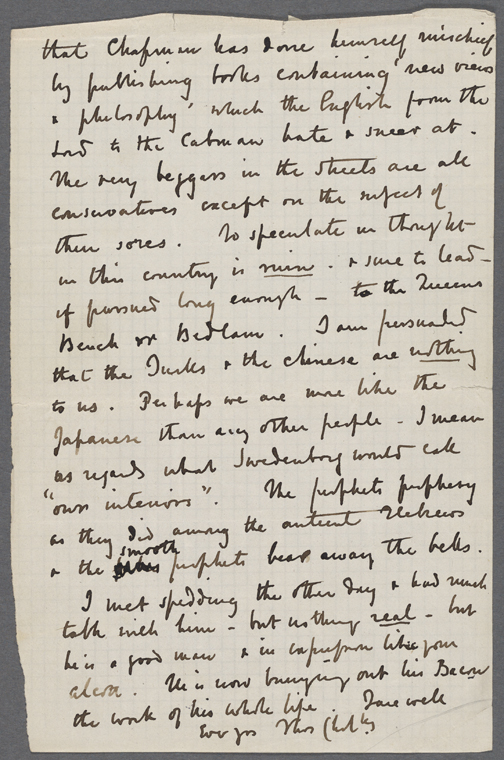 that Chapman has done himself mischief
by publishing books containing 'new views
& philosophy' which the English from the
Lord to the Cabman hate & sneer at.
The very beggars in the streets are all
conservatives except on the subject of
their sores. To speculate in thought
in this country is ruin. & sure to lead—
if pursued long enough — to the Queens
Bench or Bedlam. I am persuaded
that the Turks & the Chinese are nothing
to us. Perhaps we are more like the
Japanese than any other people — I mean
as regards what Swedenborg would call
"our interiors". The prophets prophesy
as they did among the antient Hebrews
& the smooth prophets bear away the bells.
I met Spedding the other day & had much
talk with him — but nothing real — but
he is a good man & in expression like your
alcott. He is now bringing out his Bacon
the work of his whole life. Farewell
Ever yrs Thos